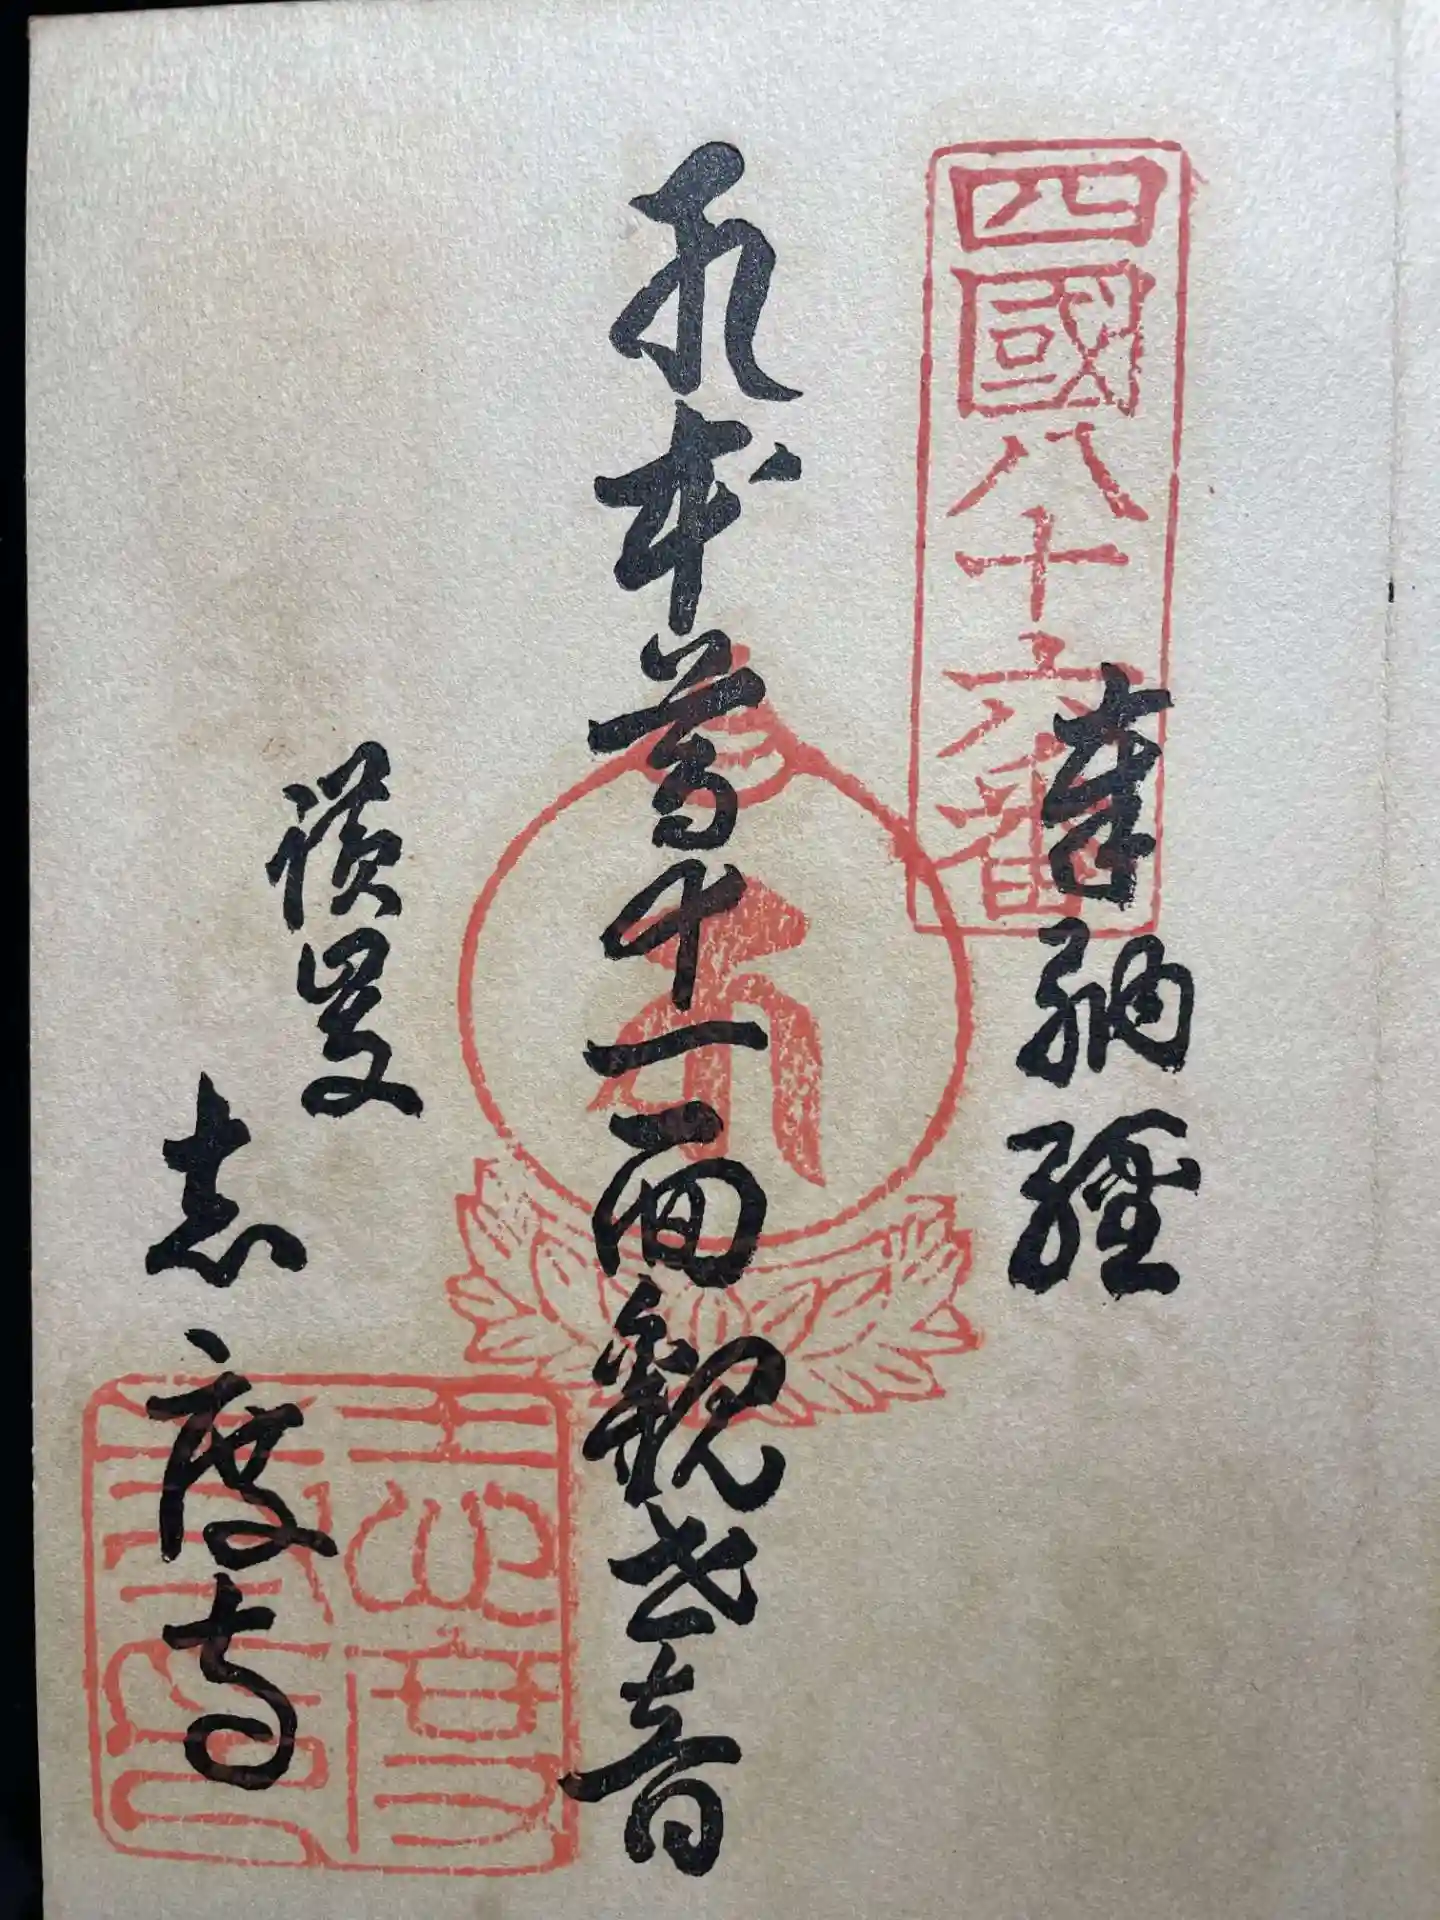 四國八十六番
奉納經
本尊十一面觀世音
讃
志度寺